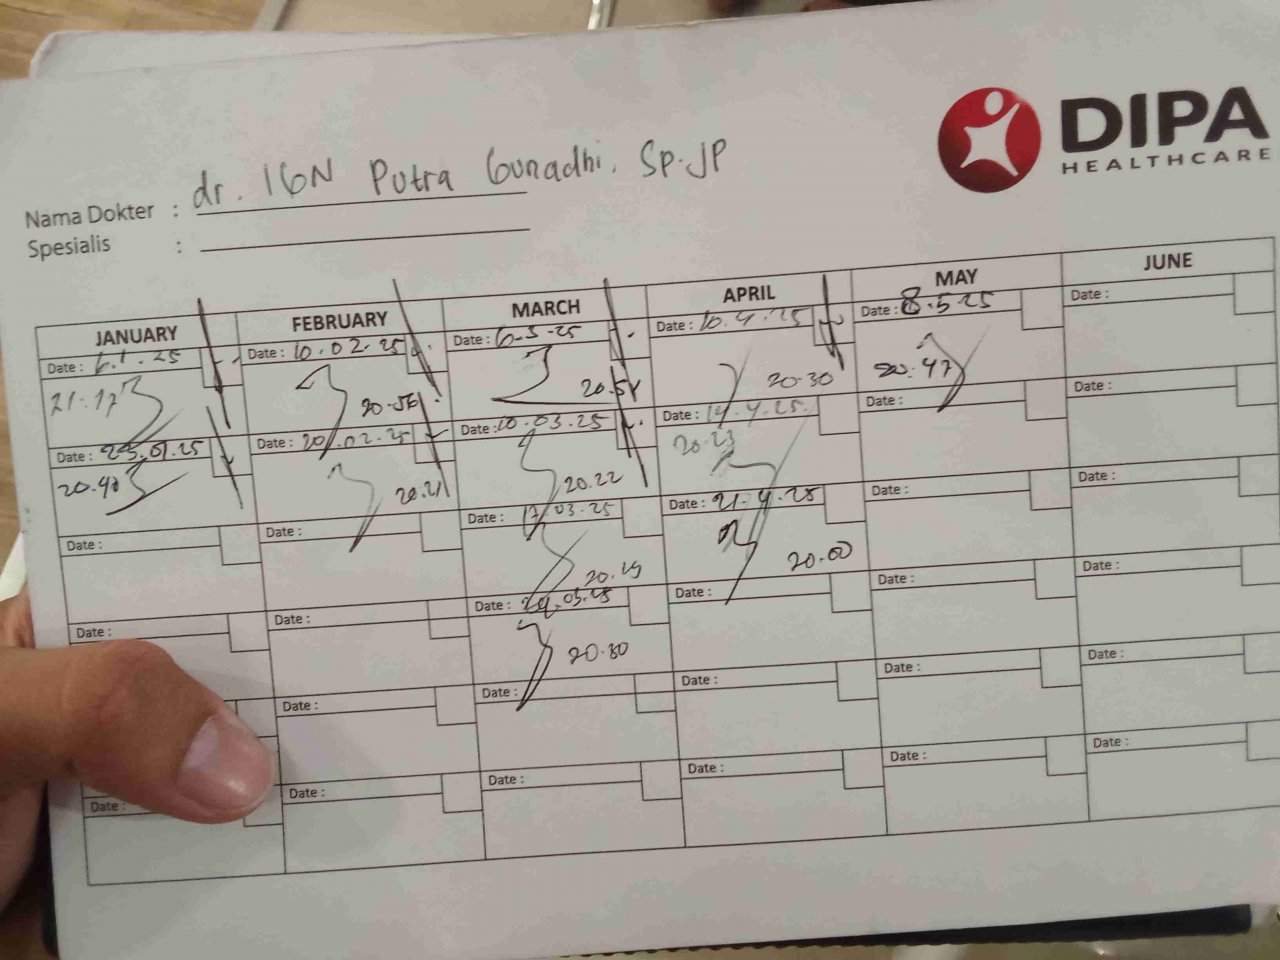 DIPA
HEALTHCARE
Nama Dokter : dr. IGN Putra Gunadhi. Sp.JP
Spesialis :
JANUARY FEBRUARY MARCH APRIL MAY JUNE
Date : 6.1.25 Date : 10.02.25 Date : 6-3-25 Date : 10.4.25 Date : 8.5.25 Date :
21.17 20.56 20.54 20.30 20.47
Date : 23.01.25 Date : 20.02.25 Date : 10.03.25 Date : 14.4.25. Date : Date :
20.40 20.21 20.22 20.23
Date : Date : Date : 17.03.25 Date : 21.4.25 Date : Date :
20.19 20.00
Date : Date : Date : 24.03.25 Date : Date : Date :
20.30
Date : Date : Date : Date : Date :
Date : Date : Date : Date : Date : Date :